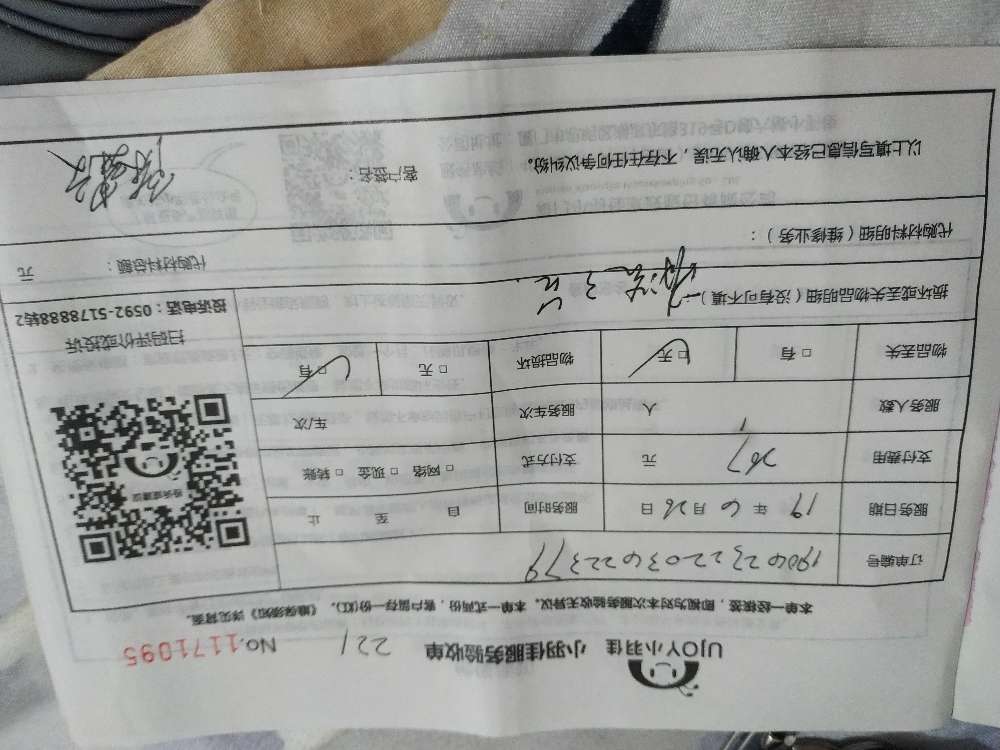 UJOY小羽佳 小羽佳服务验收单 221 No.1171095
本单一经接签，即视为对本次服务验收无异议。本单一式两份，客户留存一份(红)。《维保须知》详见背面。
订单编号 1906232203622379
服务日期 19 年 6 月 26 日 服务时间 自 至 止
支付费用 267 元 支付方式 □网络 □现金 □转账
服务人数 1 人 服务车次 车/次
物品丢失 □有 □无 物品损坏 □无 □有
损坏或丢失物品明细（没有可不填）：
扫码评价或投诉
投诉电话：0592-5178888转2
代购材料明细（维修业务）：
代购材料总额： 元
以上填写信息已经本人确认无误，不存在任何争议纠纷。 客户签名：